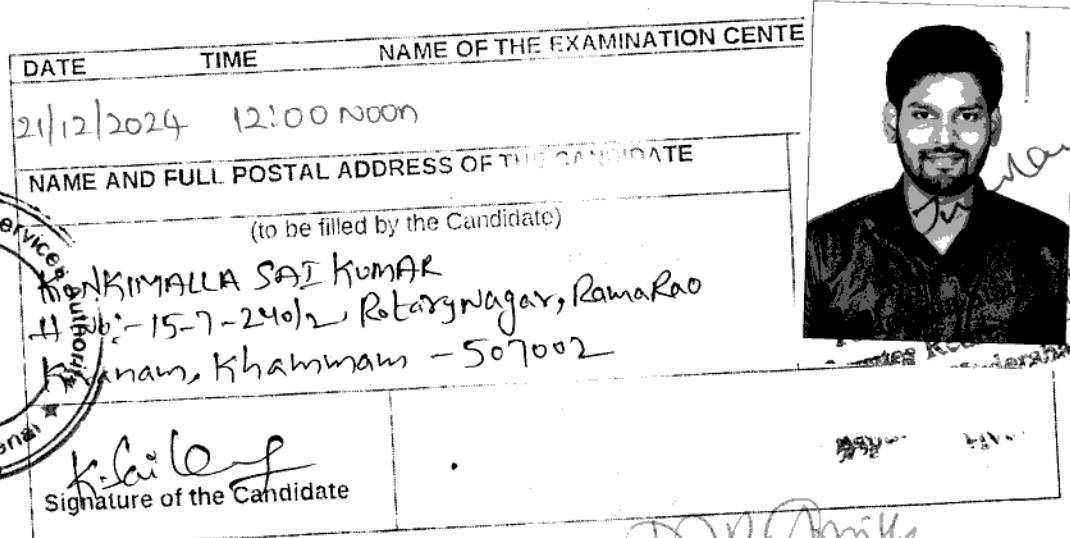 DATE TIME NAME OF THE EXAMINATION CENTE
21/12/2024 12:00 NOON
NAME AND FULL POSTAL ADDRESS OF THE CANDIDATE
(to be filled by the Candidate)
KONKIMALLA SAI KUMAR
H No:-15-7-240/2, Rotarynagar, RamaRao
Khammam - 507002
K. Sai
Signature of the Candidate
ervices Authority